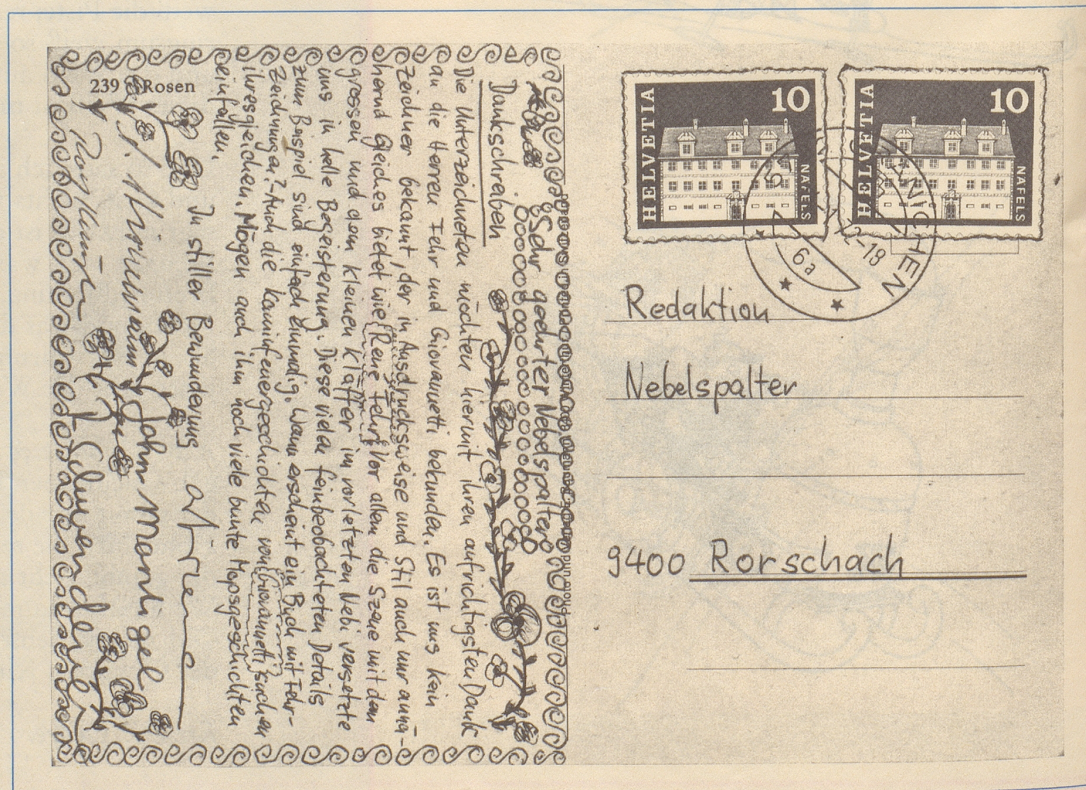 239 Rosen
Sehr geehrter Nebelspalter
Dankschreiben
Die Unterzeichneten möchten hiermit ihren aufrichtigsten Dank
an die Herren Fehr und Giovannetti bekunden. Es ist uns kein
Zeichner bekannt, der in Ausdrucksweise und Stil auch nur annä-
hernd Gleiches bietet wie René Fehr! Vor allem die Szene mit dem
grossen und dem kleinen Kläffer im vorletzten Nebi versetzte
uns in helle Begeisterung. Diese vielen feinbeobachteten Details
zum Beispiel sind einfach einmalig. Wann erscheint ein Buch mit Fehr-
Zeichnungen? Auch die Kaminfegergeschichten von Giovannetti suchen
ihresgleichen. Mögen auch ihm noch viele bunte Mopsgeschichten
einfallen.
In stiller Bewunderung
John Mantigel
HELVETIA
10
NÄFELS
HELVETIA
10
NÄFELS
-18
6a
Redaktion
Nebelspalter
9400 Rorschach